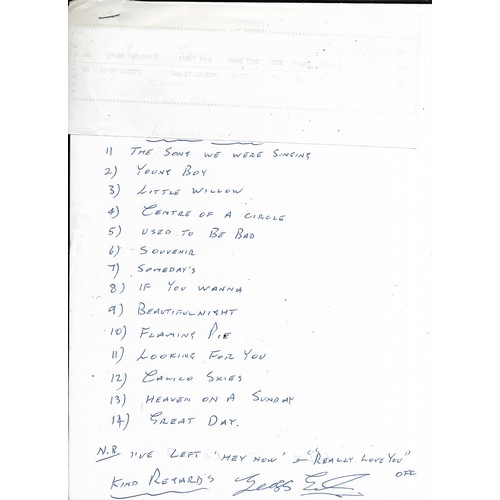 1) THE SONG WE WERE SINGING
2) YOUNG BOY
3) LITTLE WILLOW
4) CENTRE OF A CIRCLE
5) USED TO BE BAD
6) SOUVENIR
7) SOMEDAY'S
8) IF YOU WANNA
9) BEAUTIFUL NIGHT
10) FLAMING PIE
11) LOOKING FOR YOU
12) CALICO SKIES
13) HEAVEN ON A SUNDAY
14) GREAT DAY.
N.B. I'VE LEFT 'HEY NOW' & "REALLY LOVE YOU"
OFF
KIND REGARDS